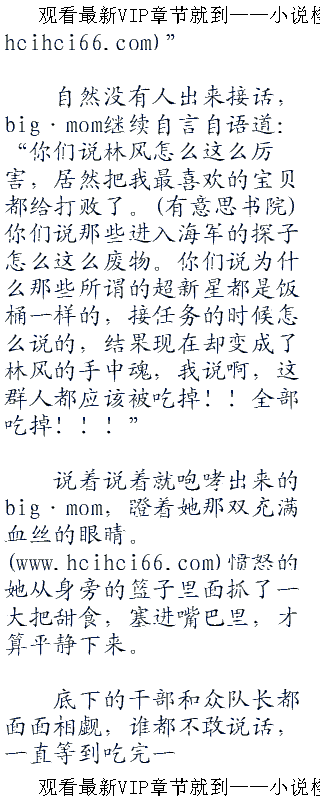 观看最新VIP章节就到——小说检
hcihci66.com)”
自然没有人出来接话，
big·mom继续自言自语道：
“你们说林风怎么这么厉
害，居然把我最喜欢的宝贝
都给打败了。(有意思书院)
你们说那些进入海军的探子
怎么这么废物。你们说为什
么那些所谓的超新星都是饭
桶一样的，接任务的时候怎
么说的，结果现在却变成了
林风的手中魂，我说啊，这
群人都应该被吃掉！！全部
吃掉！！！”
说着说着就咆哮出来的
big·mom，瞪着她那双充满
血丝的眼睛。
(www.hcihci66.com)愤怒的
她从身旁的篮子里面抓了一
大把甜食，塞进嘴巴里，才
算平静下来。
底下的干部和众队长都
面面相觑，谁都不敢说话，
一直等到吃完一
观看最新VIP章节就到——小说检